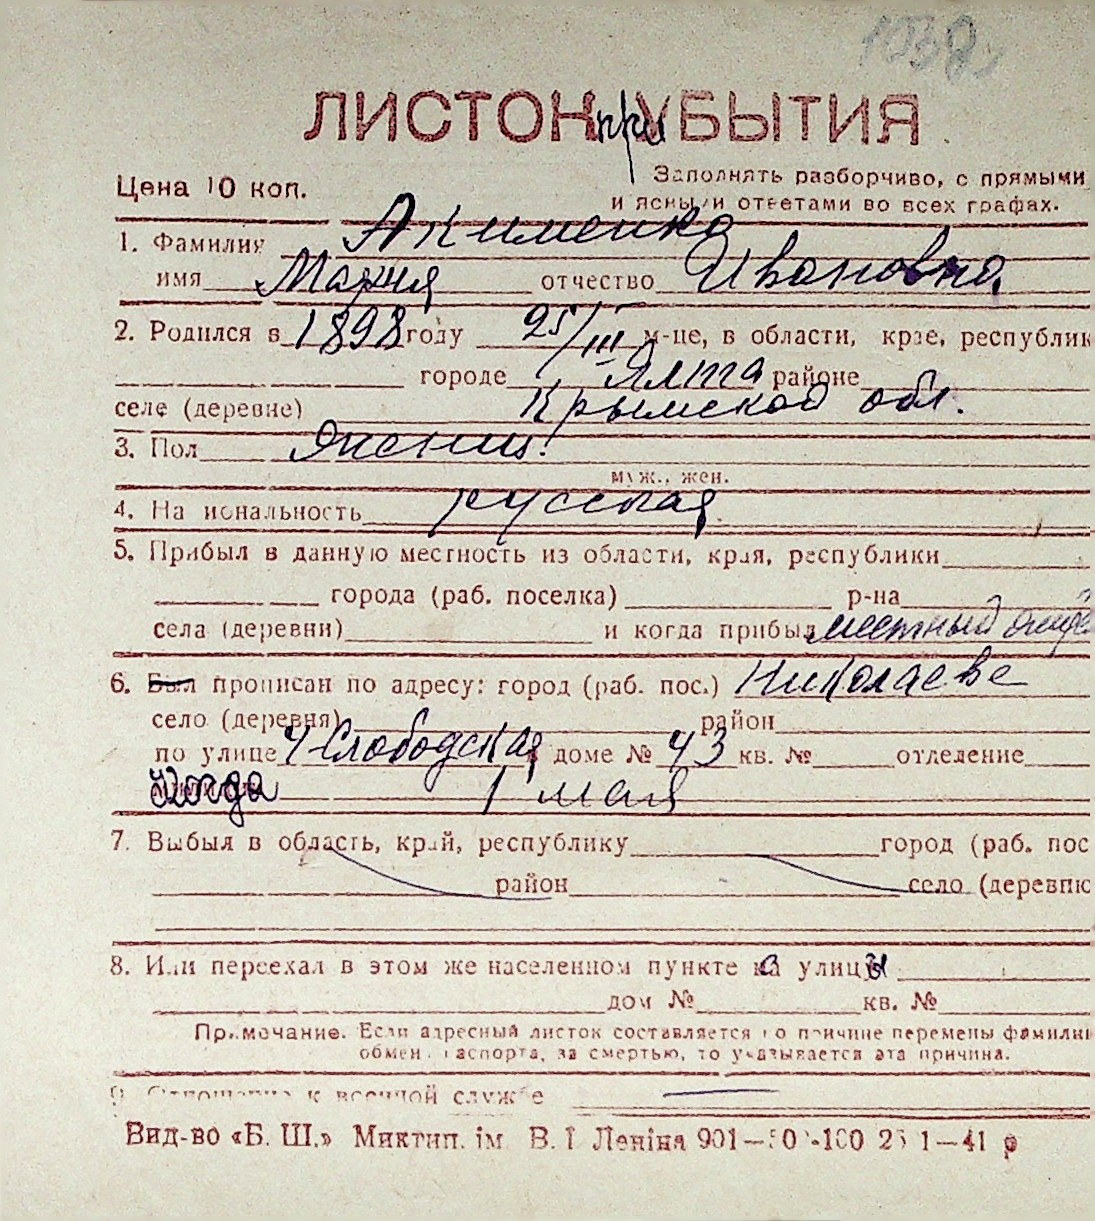 1038
ЛИСТОК при УБЫТИЯ
Заполнять разборчиво, с прямыми
Цена 10 коп.
и ясными ответами во всех графах.
1. Фамилия Акименко
имя Мария отчество Ивановна
2. Родился в 1898 году 25/III м-це, в области, крае, республик
городе Ялта районе
селе (деревне) Крымской обл.
3. Пол женщ.
муж., жен.
4. Национальность русская
5. Прибыл в данную местность из области, края, республики
города (раб. поселка) р-на
села (деревни) и когда прибыл местный
6. Был прописан по адресу: город (раб. пос.) Николаеве
село (деревня) район
по улице 4 Слободская в доме № 43 кв. № отделение
Когда 1 мая
7. Выбыл в область, край, республику город (раб. пос
район село (деревню
8. Или переехал в этом же населенном пункте с улицы
дом № кв. №
Примечание. Если адресный листок составляется по причине перемены фамилии
обмен. паспорта, за смертью, то указывается эта причина.
9. Отношение к военной службе
Вид-во «Б. Ш.» Миктип. ім. В. І. Леніна 901— -100 25 1—41 р